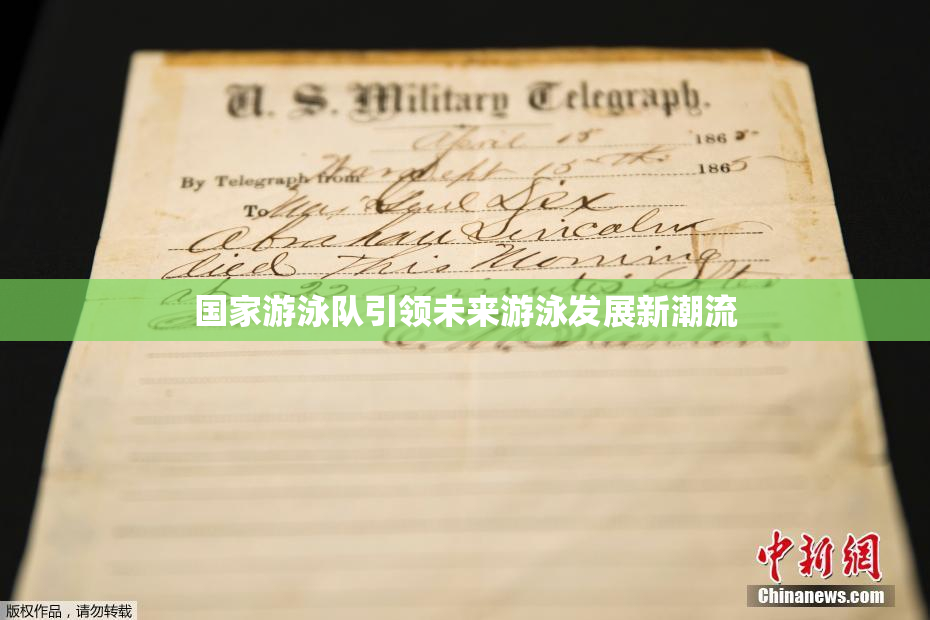 U. S. Military Telegraph.
April 15 1865.
By Telegraph from War Dept 15th 1865
To Maj Genl Dix
Abraham Lincoln
died This Morning
at 22 minutes after
国家游泳队引领未来游泳发展新潮流
E. M. Stanton
中新网
Chinanews.com
版权作品，请勿转载